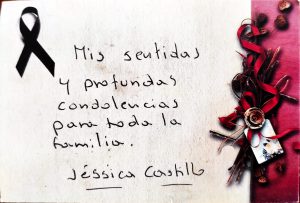 Mis sentidas
y profundas
condolencias
para toda la
familia.
Jéssica Castillo